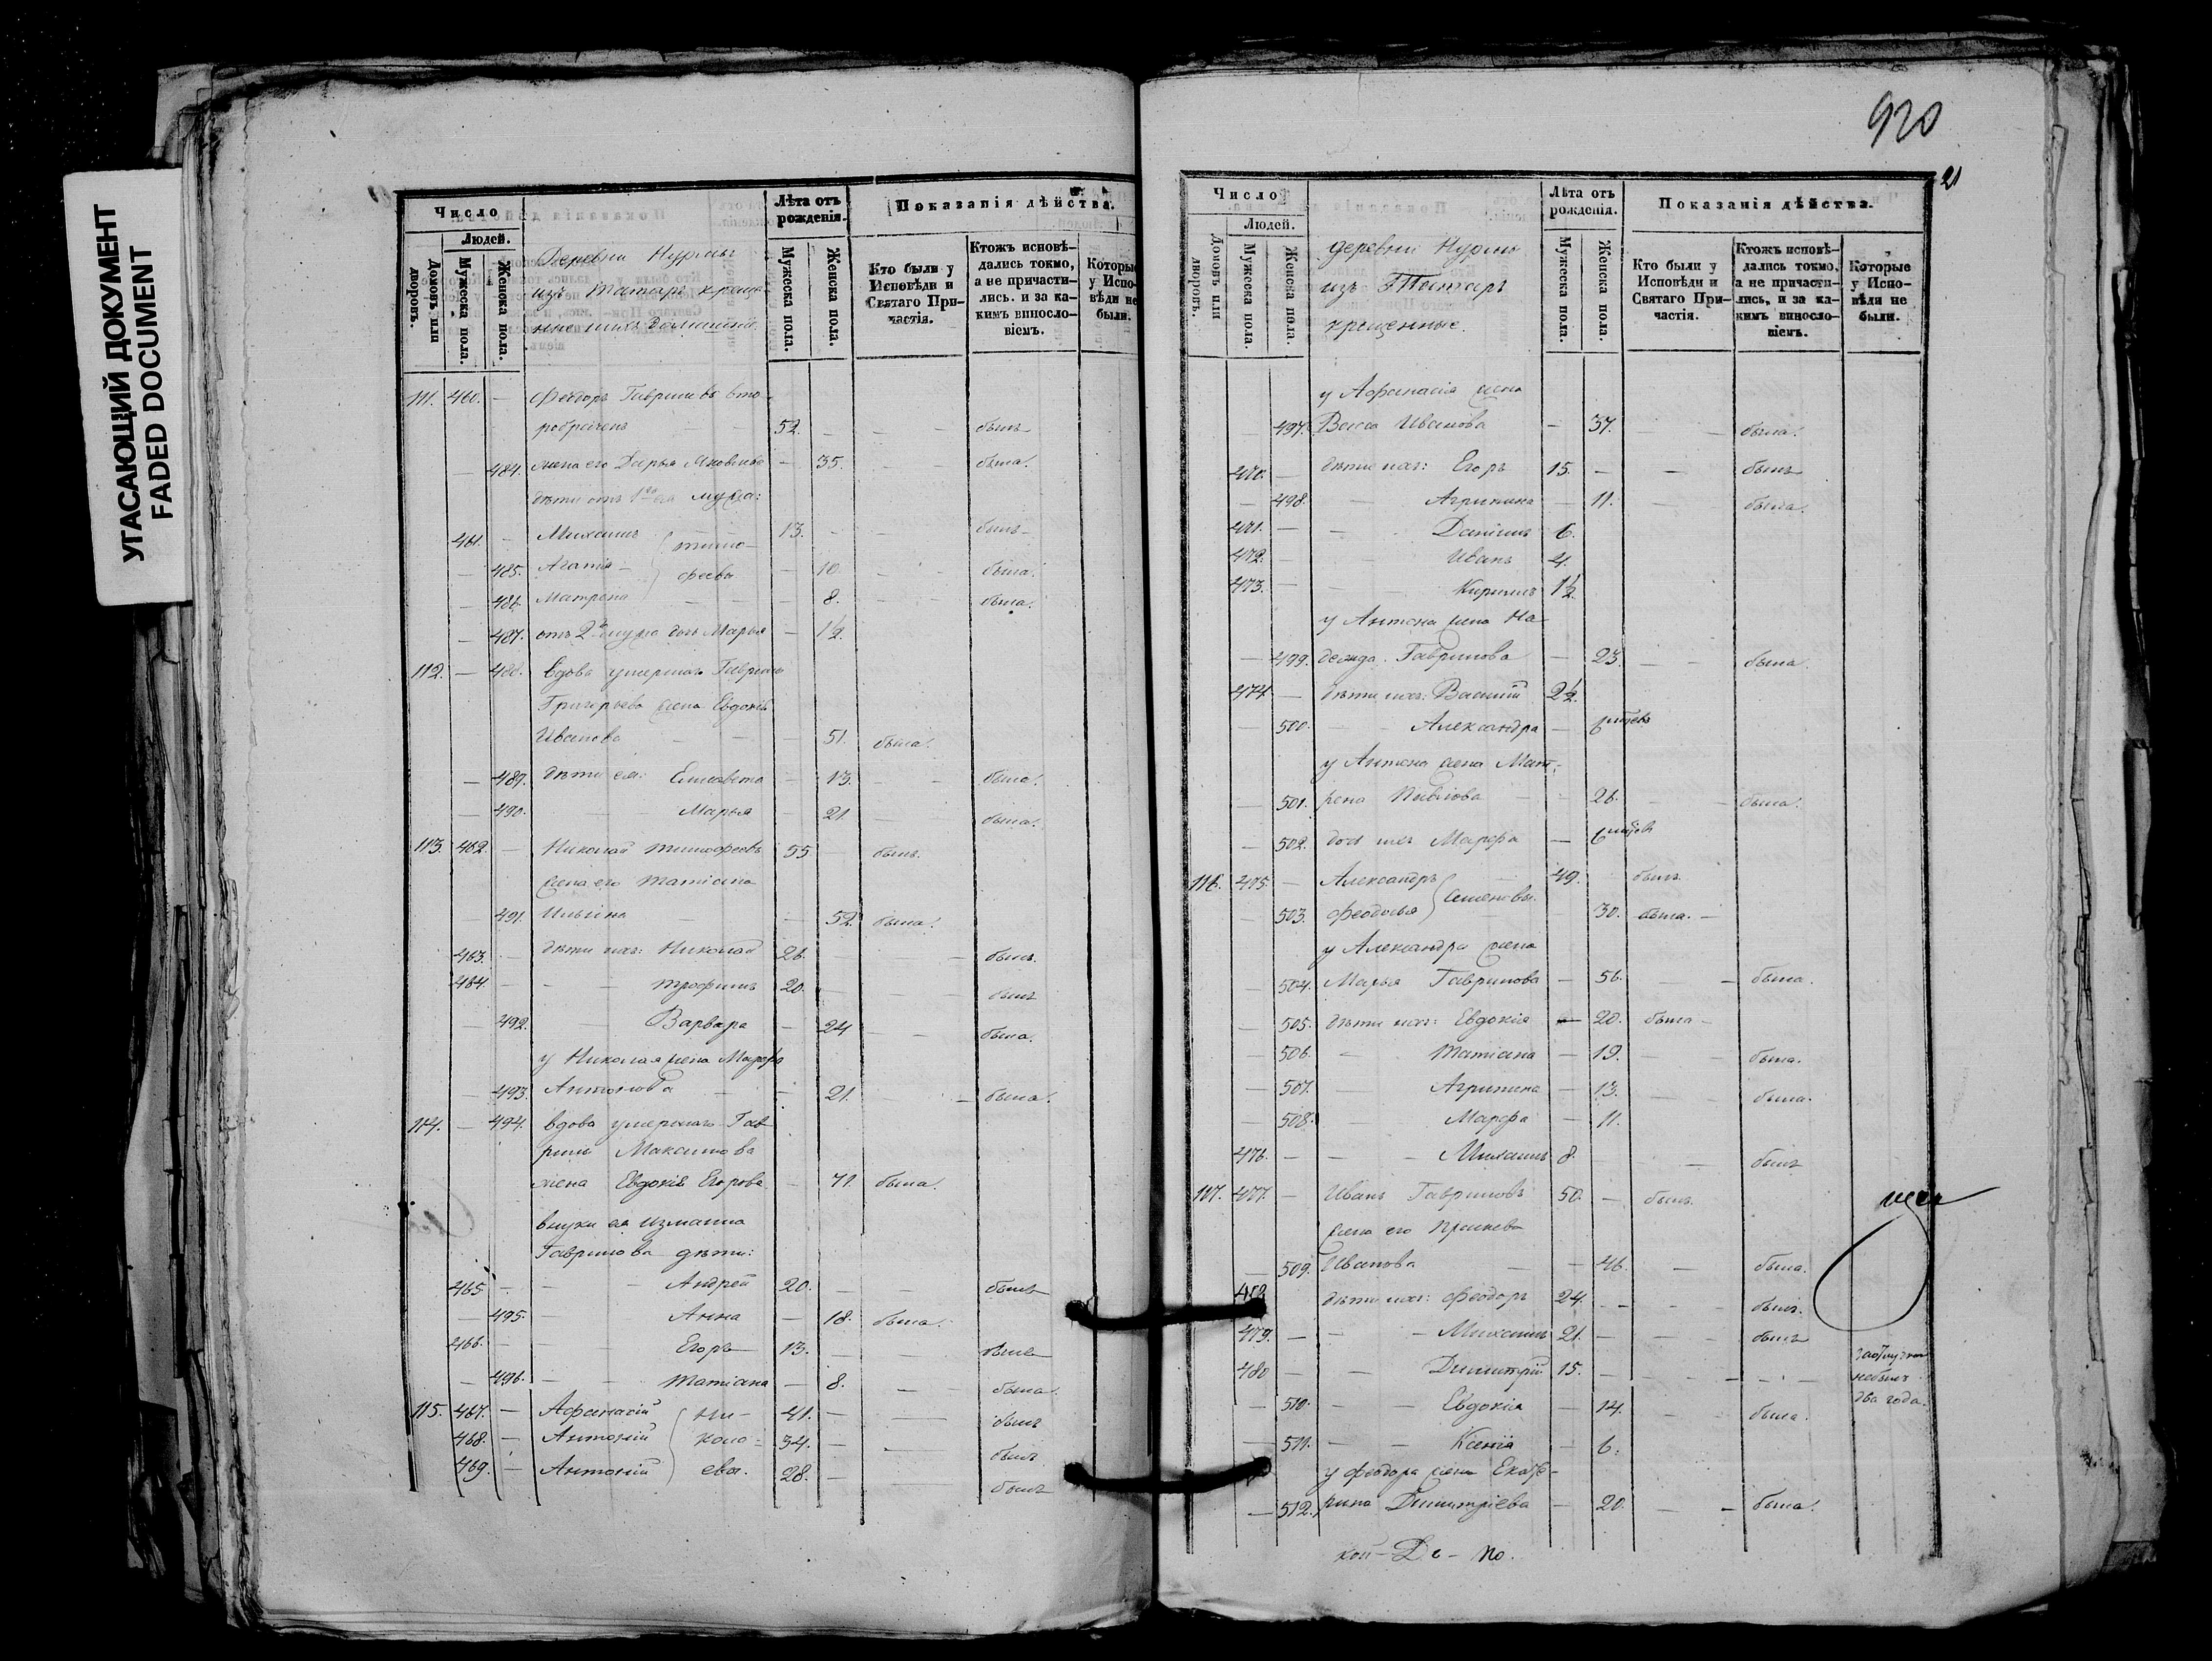 УГАСАЮЩИЙ ДОКУМЕНТ
FADED DOCUMENT
Число
Людей.
Домовъ или дворовъ.
Мужеска пола.
Женска пола.
Деревни Нурмы
изъ Татаръ креще
Лѣта отъ рожденія.
Мужеска пола.
Женска пола.
Показанія дѣйства.
Кто были у Исповѣди и Святаго Причастія.
Ктожъ исповѣдались токмо, а не причастились. и за какимъ винословіемъ.
Которые у Исповѣди не были.
111. 460. — Феодоръ Гавриловъ вто-
робраченъ — — 52. — — — былъ
— 484. жена его Дарья Яковлева — 35. — была.
дѣти отъ 1го ея мужа:
461. — Михаилъ — 13. — — былъ
— 485. Агапія — Тимо- феевы — 10. — — была.
— 486. Матрена — — 8. — была.
— 487. отъ 2го мужа дочь Марья — 1½
112. — 488. Вдова умершаго Гавріила
Григорьева жена Евдокія
Иванова — — — 51. была.
— 489. дѣти ея: Елисавета — 13. — — была.
— 490. — — Марья — 21. — была.
113. 462. — Николай Тимофеевъ 55 былъ.
жена его Татіана
— 491. Ильина — — 52. была.
463. — дѣти ихъ: Николай 26. — былъ.
464. — — — Трофимъ 20. — — — былъ
— 492. — Варвара — 24 — — была.
у Николая жена Марфа
— 493. Антонова — — 21. — — была.
114. — 494. вдова умершаго Гав
рила Максимова
жена Евдокія Егорова — 71. была.
внуки ея Измаила
Гаврилова дѣти:
465 — — — Андрей 20. — — былъ
— 495. — Анна — 18. была.
466. — — — Егоръ 13. — — былъ
— 496. — — Татіана — 8. — была.
115. 467. — Афанасій Ни- 41. — — былъ
468. — Антоній коло- 34. — — былъ
469. — Антоній евы. 28. — — былъ
920
21
Число
Людей.
Домовъ или дворовъ.
Мужеска пола.
Женска пола.
деревни Нурмы
изъ Татаръ
крещенные.
Лѣта отъ рожденія.
Мужеска пола.
Женска пола.
Показанія дѣйства.
Кто были у Исповѣди и Святаго Причастія.
Ктожъ исповѣдались токмо, а не причастились, и за какимъ винословіемъ.
Которые у Исповѣди не были.
у Афанасія жена
— 497. Васса Иванова — 37. — — была.
470. — дѣти ихъ: Егоръ 15. — — былъ
— 498. — Агрипина — 11. — была.
471. — — Даніилъ 6.
472. — — Иванъ 4.
473. — — Кирилъ 1½
у Антона жена На-
— 499. дежда Гаврилова — 23. — — была.
474 — дѣти ихъ: Василій 2½
— 500 — — Александра — 6
у Антона жена Мат-
— 501. рена Павлова — — 26. — — была.
— 502. дочь ихъ Марфа — 6
116. 475. — Александръ — 49. былъ
— 503. Феодосья Семеновы. — 30. была. —
у Александра жена
— 504. Марья Гаврилова — 56. — была.
— 505. дѣти ихъ: Евдокія — 20. была —
— 506. — Татіана — 19. — — была.
— 507. — Агрипина — 13. — — была.
— 508. — Марфа — 11.
476. — — — Михаилъ 8. — — былъ
117. 477. — Иванъ Гавриловъ 50. — былъ.
жена его
— 509. Иванова — — 46. — была.
478 дѣти ихъ: Феодоръ 24. — — — былъ.
479. — — — Михаилъ 21. — — — былъ
480 — — Димитрій 15. — — —
небылъ
два года.
— 510. — — Евдокія — 14. — — была.
— 511. — — Ксенія — 6.
у Феодора жена Екате-
— 512. рина Димитріева — 20. — — была.
кой — Де — по.